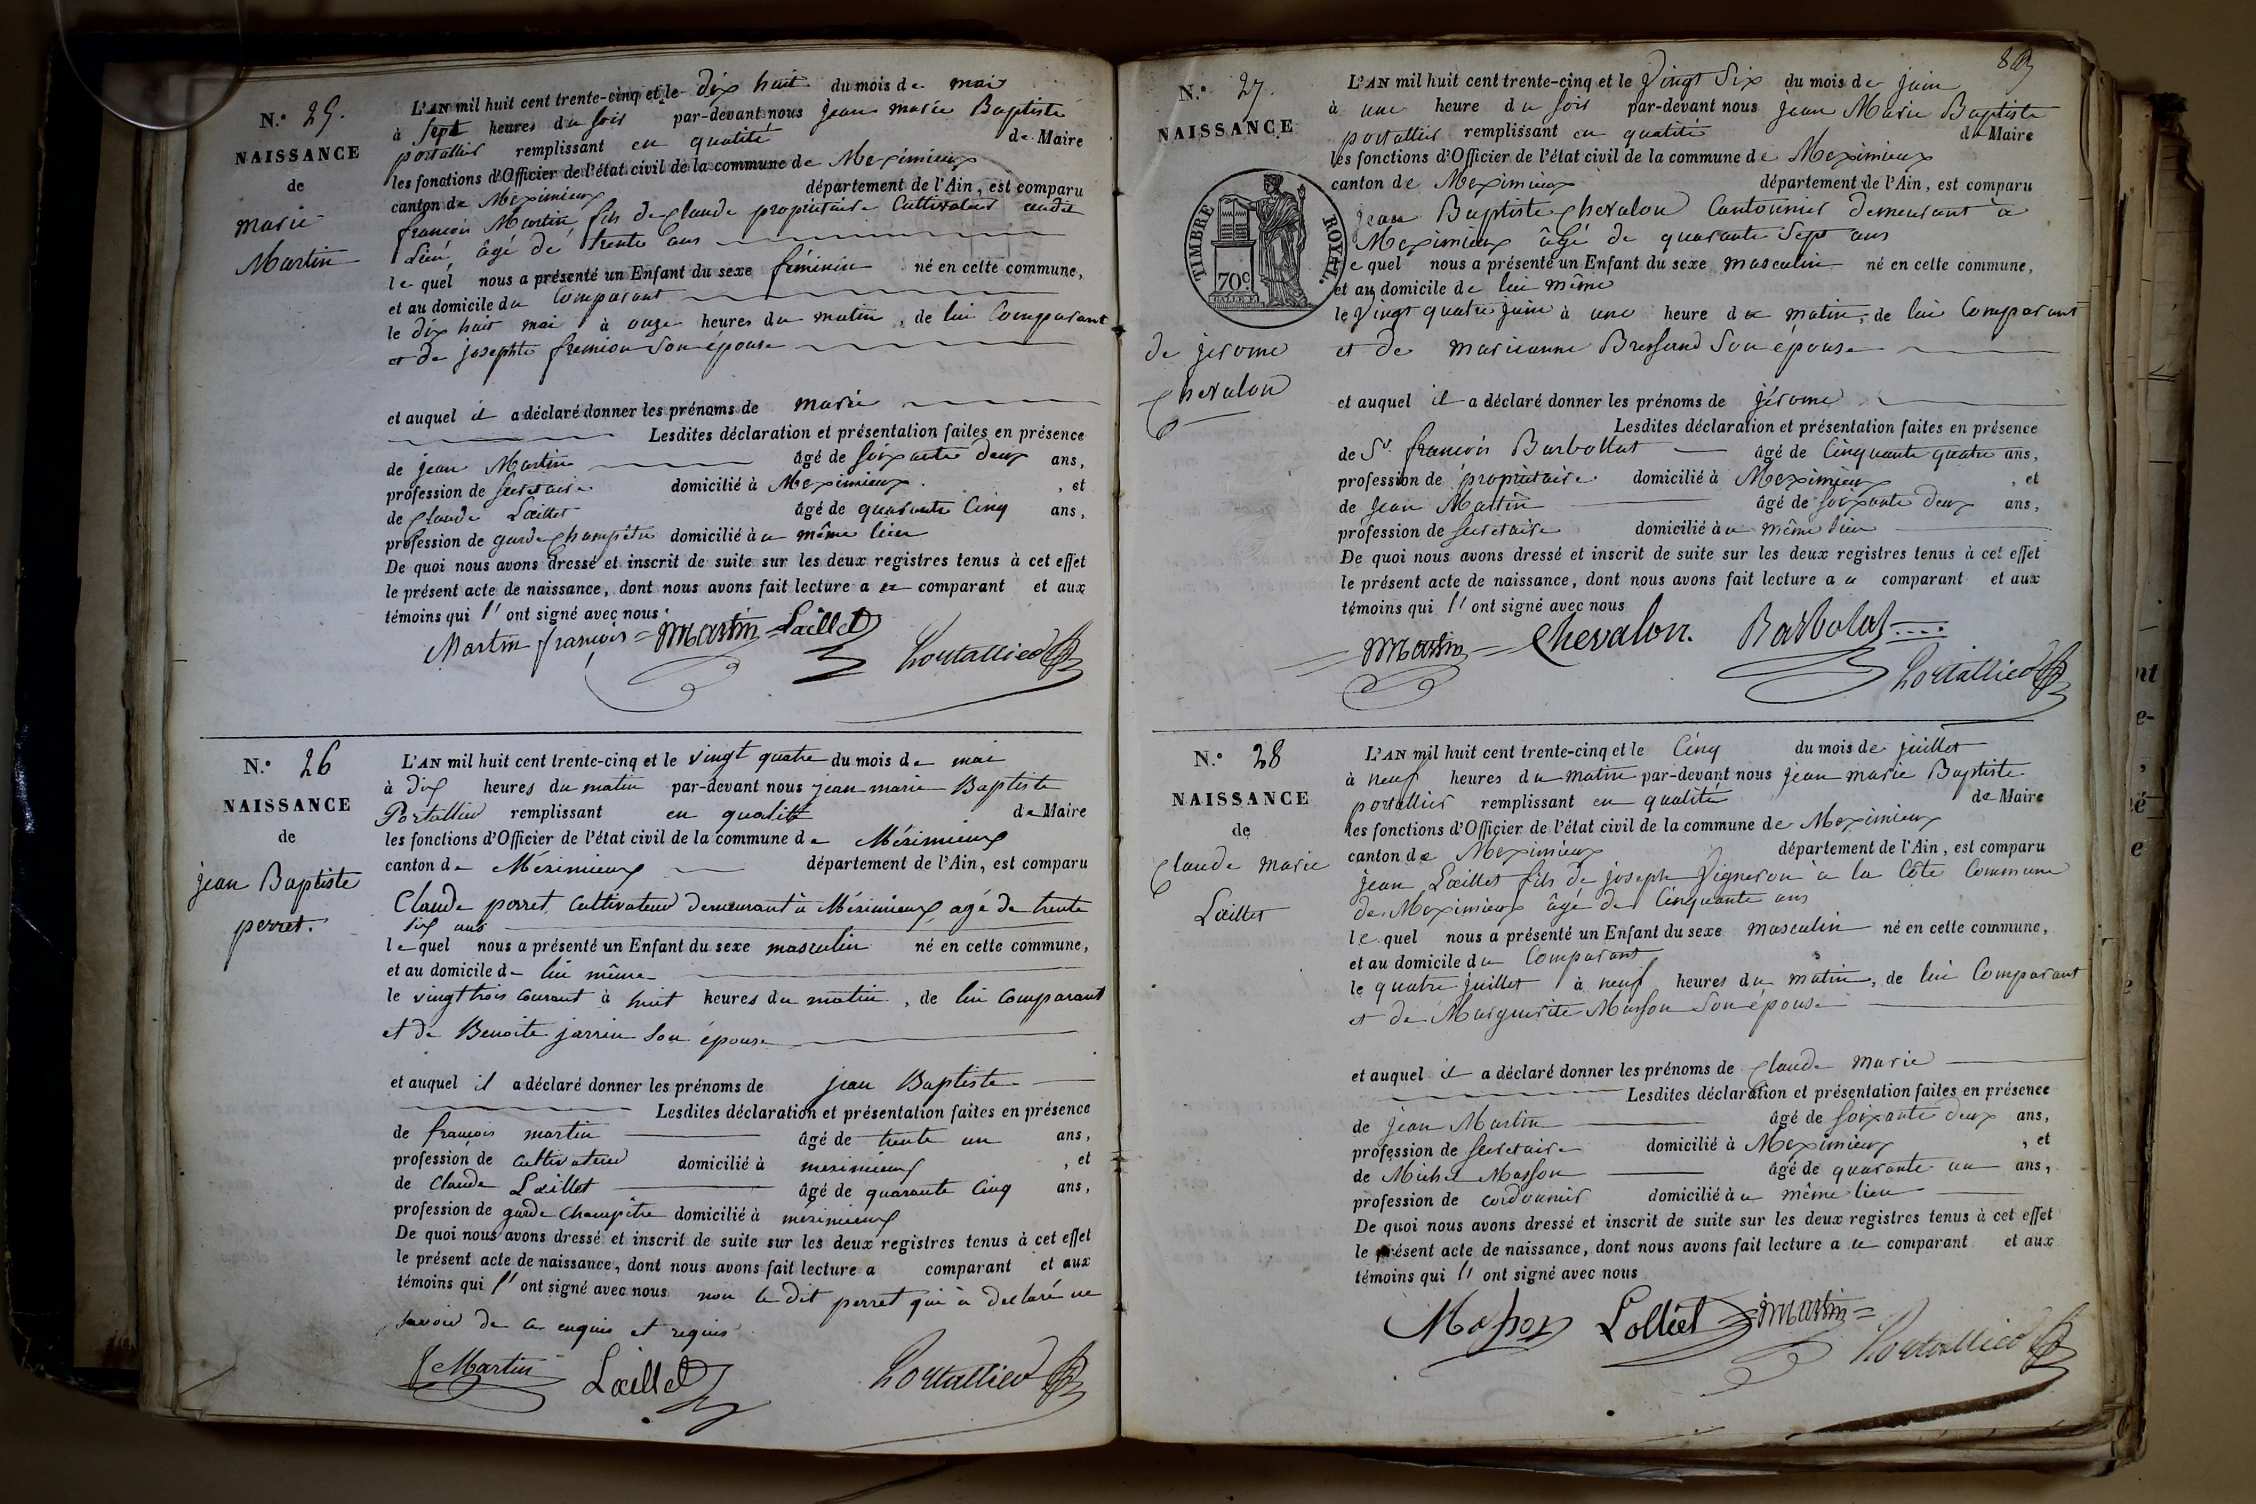 N.° 25.
NAISSANCE
de
marie
Martin
L'AN mil huit cent trente-cinq et le dix huit du mois de mai
à sept heures du soir par-devant nous jean marie Baptiste
portallier remplissant en qualité de Maire
les fonctions d'Officier de l'état civil de la commune de Meximieux
canton de Meximieux département de l'Ain, est comparu
françois Martin fils de Claude propriétaire Cultivateur audit
Lieu, âgé de trente ans
le quel nous a présenté un Enfant du sexe féminin né en cette commune,
et au domicile du Comparant
le dix huit mai à onze heures du matin, de lui Comparant
et de josephte son épouse
et auquel il a déclaré donner les prénoms de marie
Lesdites déclaration et présentation faites en présence
de jean Martin âgé de soixante deux ans,
profession de secretaire domicilié à Meximieux, et
de Claude Lœillet âgé de quarante Cinq ans,
profession de garde Champêtre domicilié à u même lieu
De quoi nous avons dressé et inscrit de suite sur les deux registres tenus à cet effet
le présent acte de naissance, dont nous avons fait lecture a u comparant et aux
témoins qui l' ont signé avec nous
Martin françois = Martin = Lœillet
Portallier
N.° 26
NAISSANCE
de
jean Baptiste
perret.
L'AN mil huit cent trente-cinq et le vingt quatre du mois de mai
à dix heures du matin par-devant nous jean marie Baptiste
Portallier remplissant en qualité de Maire
les fonctions d'Officier de l'état civil de la commune de Méximieux
canton de Méximieux département de l'Ain, est comparu
Claude perret, Cultivateur demeurant à Méximieux agé de trente
six ans
le quel nous a présenté un Enfant du sexe masculin né en cette commune,
et au domicile de lui même
le vingt trois courant à huit heures du matin, de lui comparant
et de Benoite jarrin son épouse
et auquel il a déclaré donner les prénoms de jean Baptiste
Lesdites déclaration et présentation faites en présence
de françois martin âgé de trente un ans,
profession de cultivateur domicilié à meximieux, et
de Claude Lœillet âgé de quarante Cinq ans,
profession de garde Champêtre domicilié à meximieux
De quoi nous avons dressé et inscrit de suite sur les deux registres tenus à cet effet
le présent acte de naissance, dont nous avons fait lecture a comparant et aux
témoins qui l' ont signé avec nous non le dit perret qui a declaré ne
savoir de ce enquis et requis
f Martin Lœillet Portallier
89
N.° 27.
NAISSANCE
TIMBRE ROYAL.
70c.
de jerome
Chevalon
L'AN mil huit cent trente-cinq et le Vingt Six du mois de juin
à une heure du soir par-devant nous jean Marie Baptiste
portallier remplissant en qualité de Maire
les fonctions d'Officier de l'état civil de la commune de Meximieux
canton de Meximieux département de l'Ain, est comparu
jean Baptiste Chevalon Cantonnier demeurant à
Meximieux âgé de quarante Sept ans
le quel nous a présenté un Enfant du sexe masculin né en cette commune,
et au domicile de lui même
le Vingt quatre juin à une heure du matin, de lui Comparant
et de marieanne Bressand Son épouse
et auquel il a déclaré donner les prénoms de jérome
Lesdites déclaration et présentation faites en présence
de Sr. françois Barbollat âgé de Cinquante quatre ans,
profession de propriétaire domicilié à Meximieux, et
de Jean Martin âgé de soixante deux ans,
profession de secretaire domicilié à u même lieu
De quoi nous avons dressé et inscrit de suite sur les deux registres tenus à cet effet
le présent acte de naissance, dont nous avons fait lecture a u comparant et aux
témoins qui l' ont signé avec nous
= Martin = Chevalon. Barbolat
Portallier
N.° 28
NAISSANCE
de
Claude marie
Lœillet
L'AN mil huit cent trente-cinq et le Cinq du mois de juillet
à neuf heures du matin par-devant nous jean marie Baptiste
portallier remplissant en qualité de Maire
les fonctions d'Officier de l'état civil de la commune de Meximieux
canton de Meximieux département de l'Ain, est comparu
jean Lœillet fils de joseph Vigneron à la Côte Commune
de Meximieux âgé de Cinquante ans
le quel nous a présenté un Enfant du sexe masculin né en cette commune,
et au domicile du Comparant
le quatre juillet à neuf heures du matin, de lui Comparant
et de Marguerite Masson son épouse
et auquel il a déclaré donner les prénoms de Claude marie
Lesdites déclaration et présentation faites en présence
de jean Martin âgé de soixante deux ans,
profession de secretaire domicilié à Meximieux, et
de Michel Masson âgé de quarante un ans,
profession de cordonnier domicilié à u même lieu
De quoi nous avons dressé et inscrit de suite sur les deux registres tenus à cet effet
le présent acte de naissance, dont nous avons fait lecture a u comparant et aux
témoins qui l' ont signé avec nous
Masson Lolliet = Martin =
Portallier